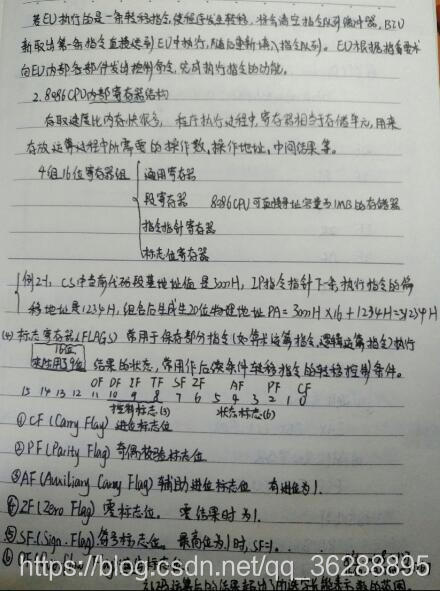 若EU执行的是一条转移指令,使程序发生转移,将会清空指令队列缓冲器,BIU
新取出第一条指令直接送到EU中执行,随后重新填入指令队列。EU根据指令要求
向EU内部各部件发出控制命令,完成执行指令的功能。
2.8086CPU内部寄存器结构
存取速度比内存快很多,程序执行过程中,寄存器相当于存储单元,用来
存放运算过程中所需要的操作数,操作地址,中间结果等。
4组16位寄存器组
通用寄存器
段寄存器 8086CPU可直接寻址容量为1MB的存储器
指令指针寄存器
标志位寄存器
例2-1,CS中当前代码段基地址值是3000H,IP指令指针下一条执行指令的偏
移地址是1234H,组合后生成20位物理地址PA=3000H×16+1234H=31234H
(4)标志寄存器(FLAGS)常用于保存部分指令(如算术运算指令,逻辑运算指令)执行
16位
实际用了9位
结果的状态,常用作后续条件转移指令的转移控制条件。
OF DF IF TF SF ZF AF PF CF
15 14 13 12 11 10 9 8 7 6 5 4 3 2 1 0
控制标志(3) 状态标志(6)
①CF(Carry Flag)进位标志位
②PF(Parity Flag)奇偶校验标志位
③AF(Auxiliary Carry Flag)辅助进位标志位 有进位为1.
④ZF(Zero Flag)零标志位。零结果时为1.
⑤SF(Sign Flag)符号标志位。最高位为1时,SF=1.
https://blog.csdn.net/qq_36288895